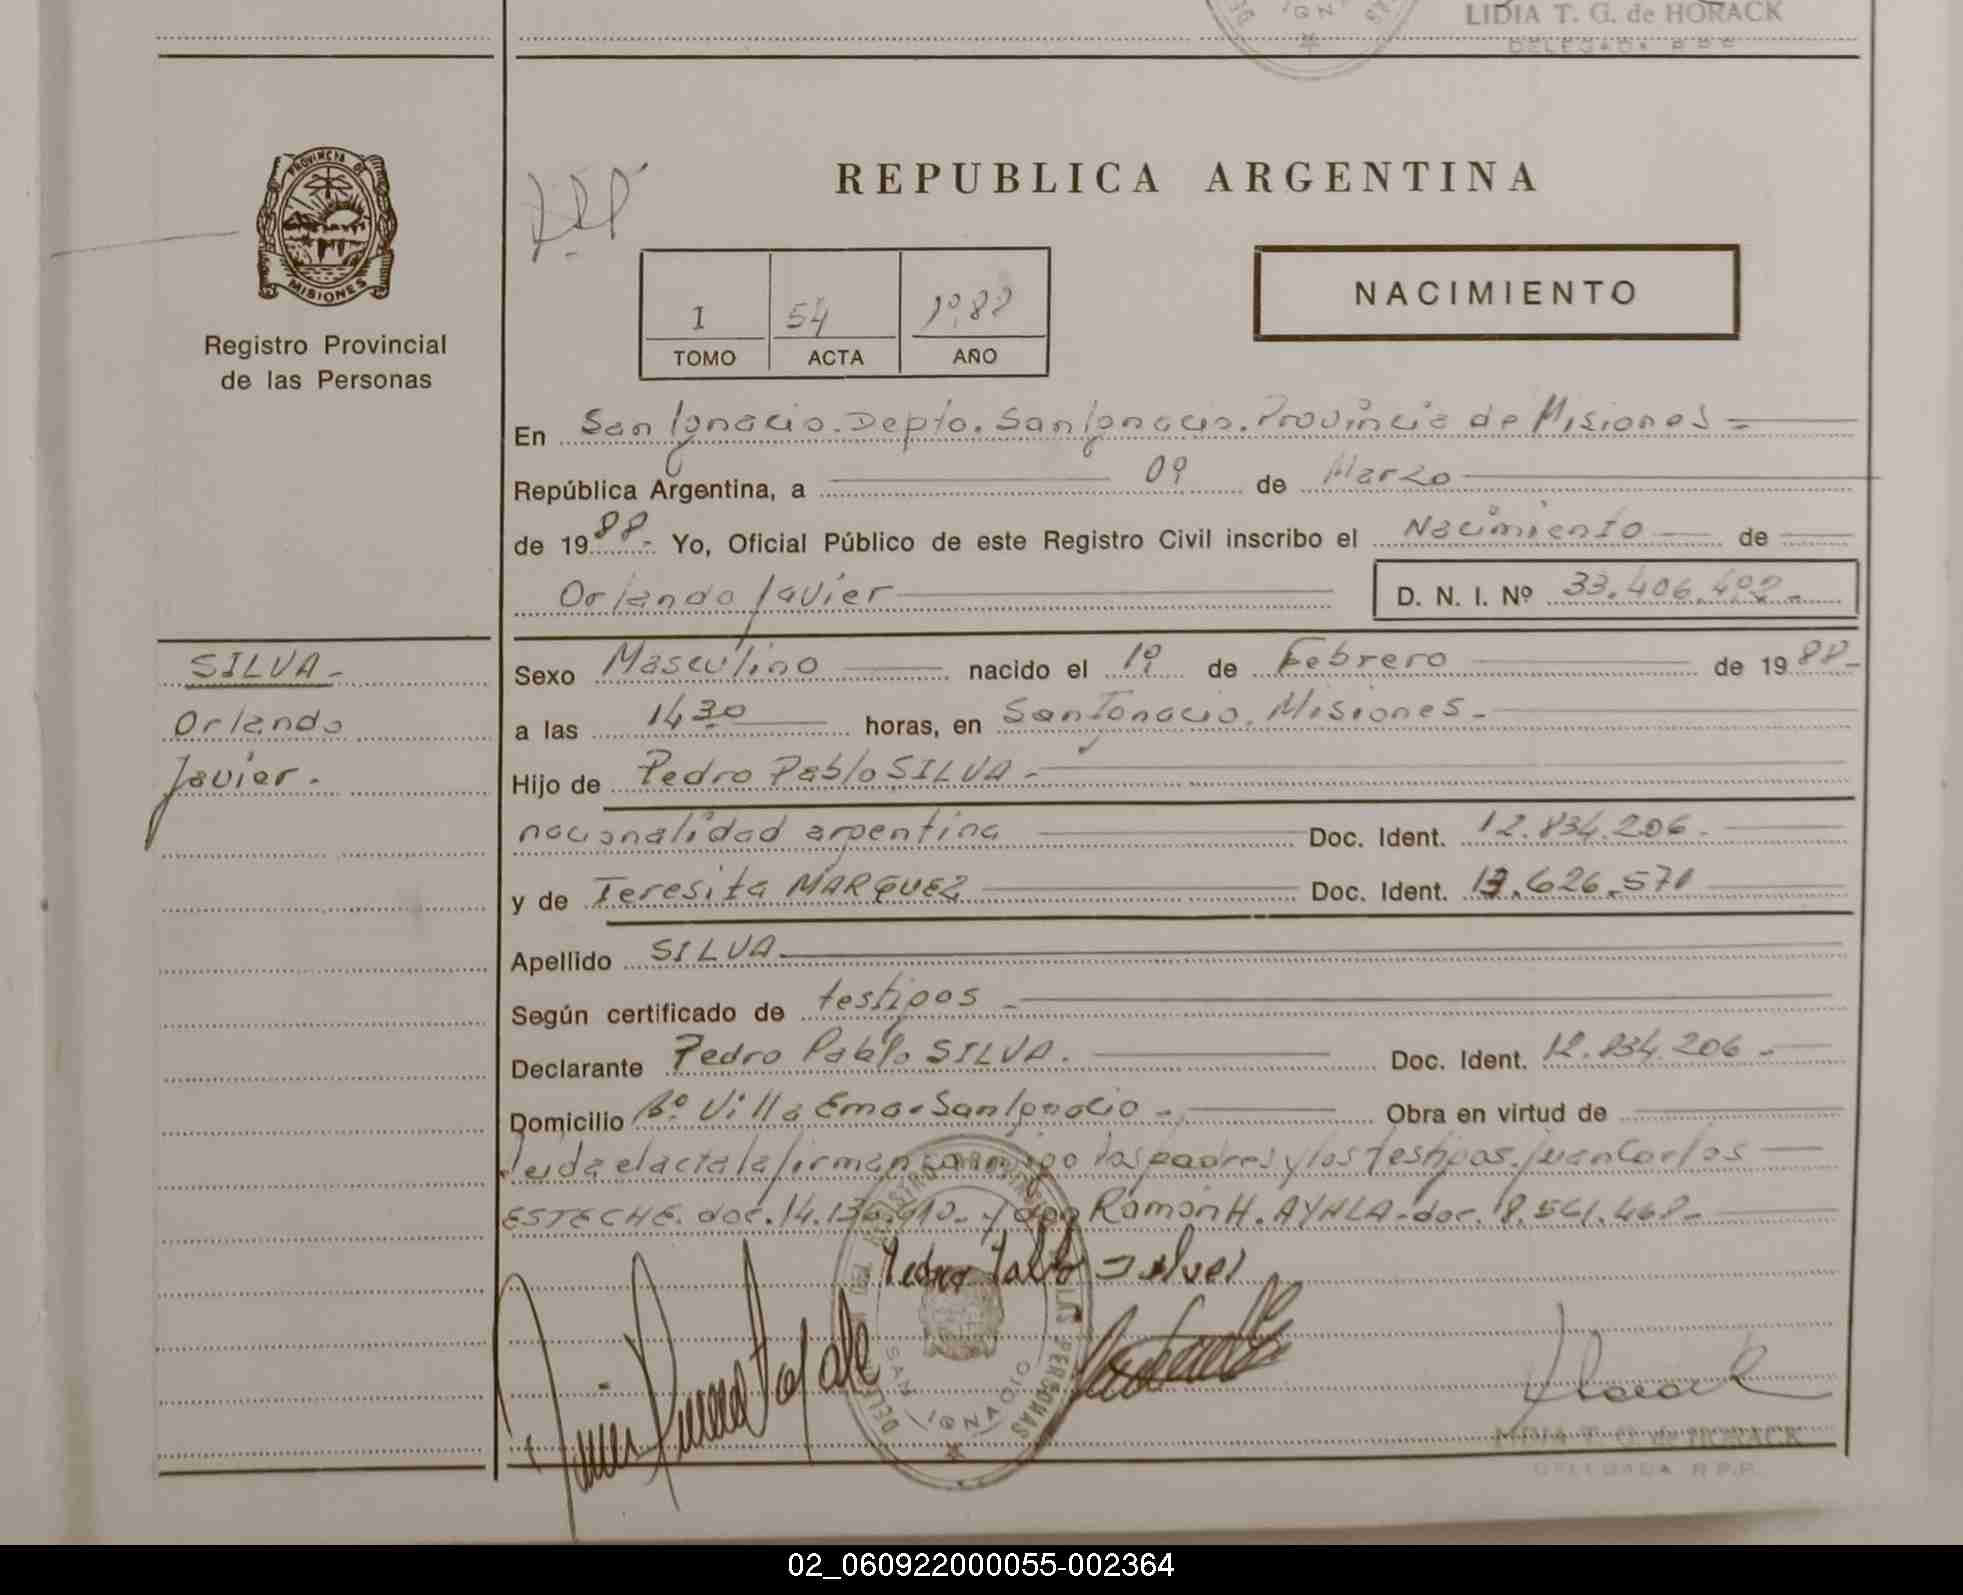 LIDIA T. G. de HORACK
DELEGADA R.P.P.
PROVINCIA DE
MISIONES
Registro Provincial
de las Personas
REPUBLICA ARGENTINA
NACIMIENTO
I 54 1988
TOMO ACTA AÑO
En San Ignacio. Depto. San Ignacio. Provincia de Misiones -
República Argentina, a 09 de Marzo
de 1988.- Yo, Oficial Público de este Registro Civil inscribo el Nacimiento de
Orlando Javier D. N. I. Nº 33.406.492.-
SILVA -
Orlando
Javier.
Sexo Masculino nacido el 19 de Febrero de 1988-
a las 14 30 horas, en San Ignacio. Misiones -
Hijo de Pedro Pablo SILVA -
nacionalidad argentina Doc. Ident. 12.834.206.-
y de Teresita MARQUEZ Doc. Ident. 13.626.571
Apellido SILVA
Según certificado de testigos -
Declarante Pedro Pablo SILVA. Doc. Ident. 12.834.206 -
Domicilio Bº Villa Ema - San Ignacio - Obra en virtud de
leida el acta la firman conmigo los padres y los testigos. Juan Carlos
ESTECHE. doc. 14.136.910 - y don Ramón H. AYALA - doc. 18.561.468-
Pedro Pablo Silva
SAN IGNACIO
LIDIA T. G. de HORACK
DELEGADA R.P.P.
02_060922000055-002364